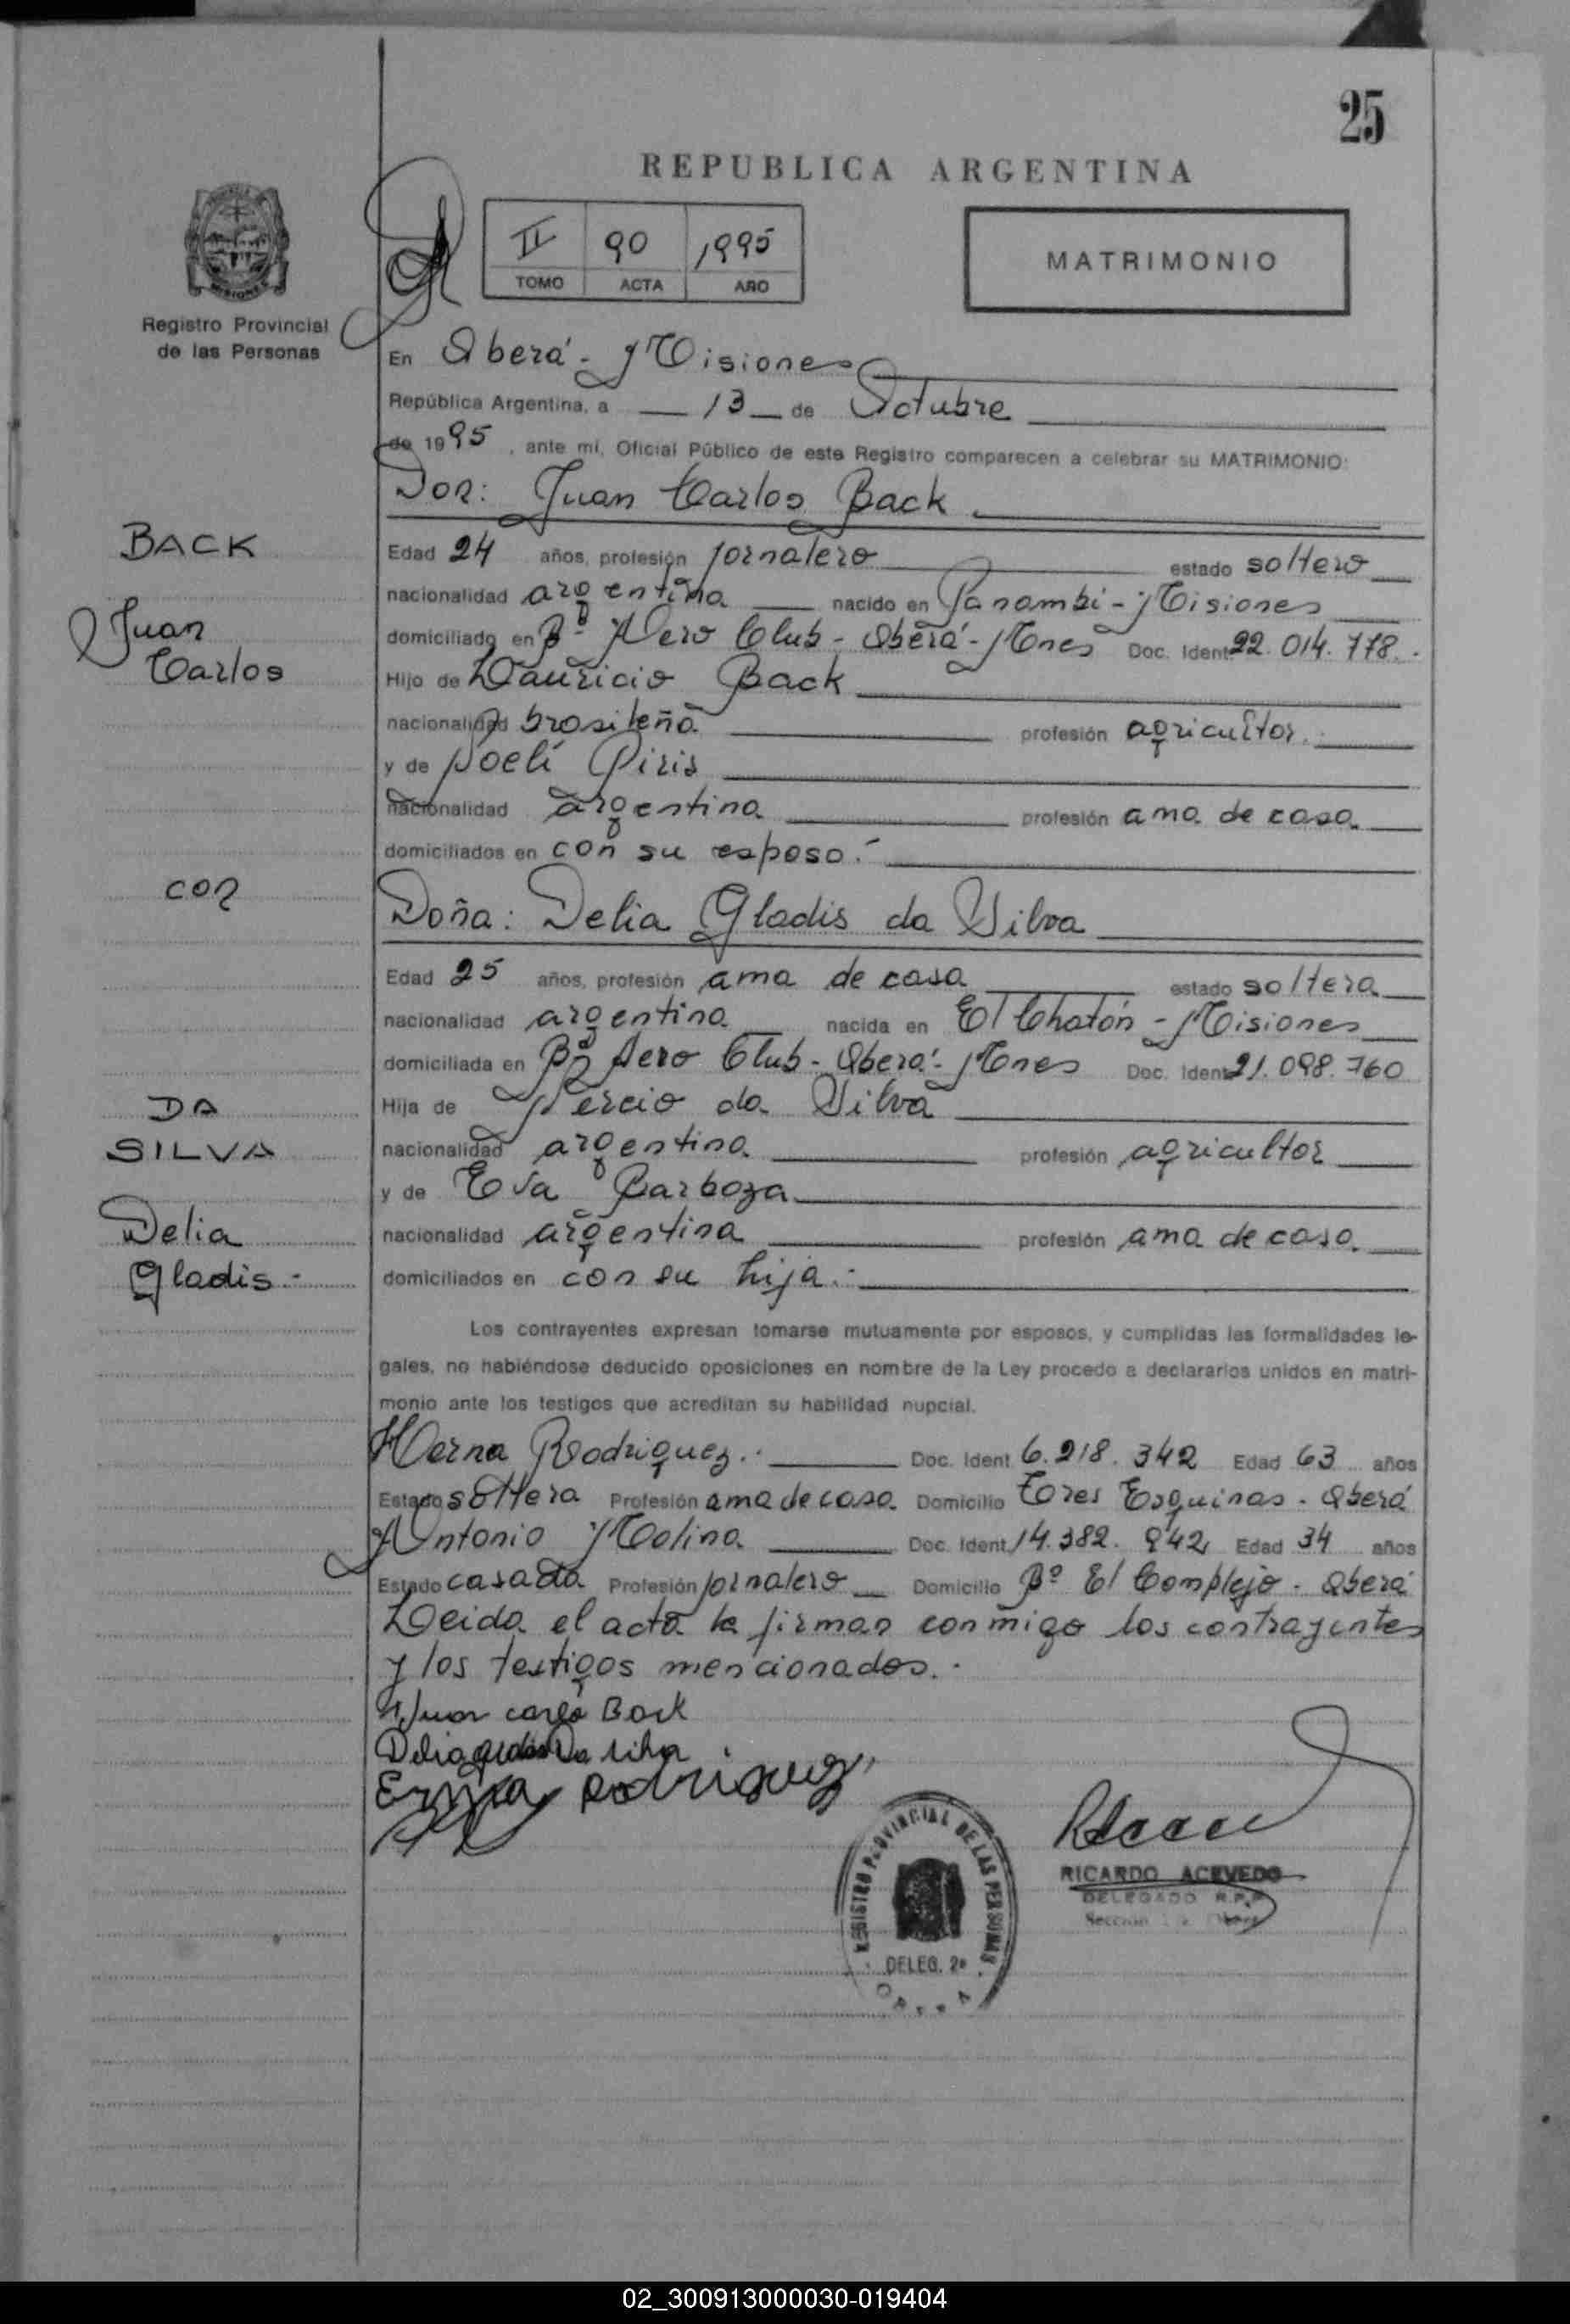 25
REPUBLICA ARGENTINA
II 90 1995
TOMO ACTA AÑO
MATRIMONIO
Registro Provincial
de las Personas
En Oberá - Misiones
República Argentina, a 13 de Octubre
de 1995, ante mí, Oficial Público de este Registro comparecen a celebrar su MATRIMONIO:
Don: Juan Carlos Back
BACK
Juan
Carlos
Edad 24 años, profesión jornalero estado soltero
nacionalidad argentina nacido en Panambí - Misiones
domiciliado en Bº Aero Club - Oberá - Mnes Doc. Ident. 22.014.778.
Hijo de Mauricio Back
nacionalidad brasileña profesión agricultor.
y de Noelí Piris
nacionalidad argentina profesión ama de casa
domiciliados en con su esposo.-
con
Doña: Delia Gladis da Silva
Edad 25 años, profesión ama de casa estado soltera
nacionalidad argentina nacida en El Chatón - Misiones
domiciliada en Bº Aero Club - Oberá - Mnes Doc. Ident. 21.098.760
DA
SILVA
Delia
Gladis -
Hija de Nercio da Silva
nacionalidad argentina profesión agricultor
y de Eva Barboza
nacionalidad argentina profesión ama de casa
domiciliados en con su hija.-
Los contrayentes expresan tomarse mutuamente por esposos, y cumplidas las formalidades le-
gales, no habiéndose deducido oposiciones en nombre de la Ley procedo a declararlos unidos en matri-
monio ante los testigos que acreditan su habilidad nupcial.
Herna Rodriguez.- Doc. Ident 6.218.342 Edad 63 años
Estado soltera Profesión ama de casa Domicilio Tres Esquinas - Oberá
Antonio Molina Doc. Ident. 14.382.842 Edad 34 años
Estado casado Profesión jornalero Domicilio Bº El Complejo - Oberá
Leida el acta la firman conmigo los contrayentes
y los testigos mencionados.-
Juan Carlo Back
Delia gladis Da silva
Erna Rodriguez
REGISTRO PROVINCIAL DE LAS PERSONAS
DELEG. 2ª
OBERA
RICARDO ACEVEDO
DELEGADO R.P.P
Sección
02_300913000030-019404